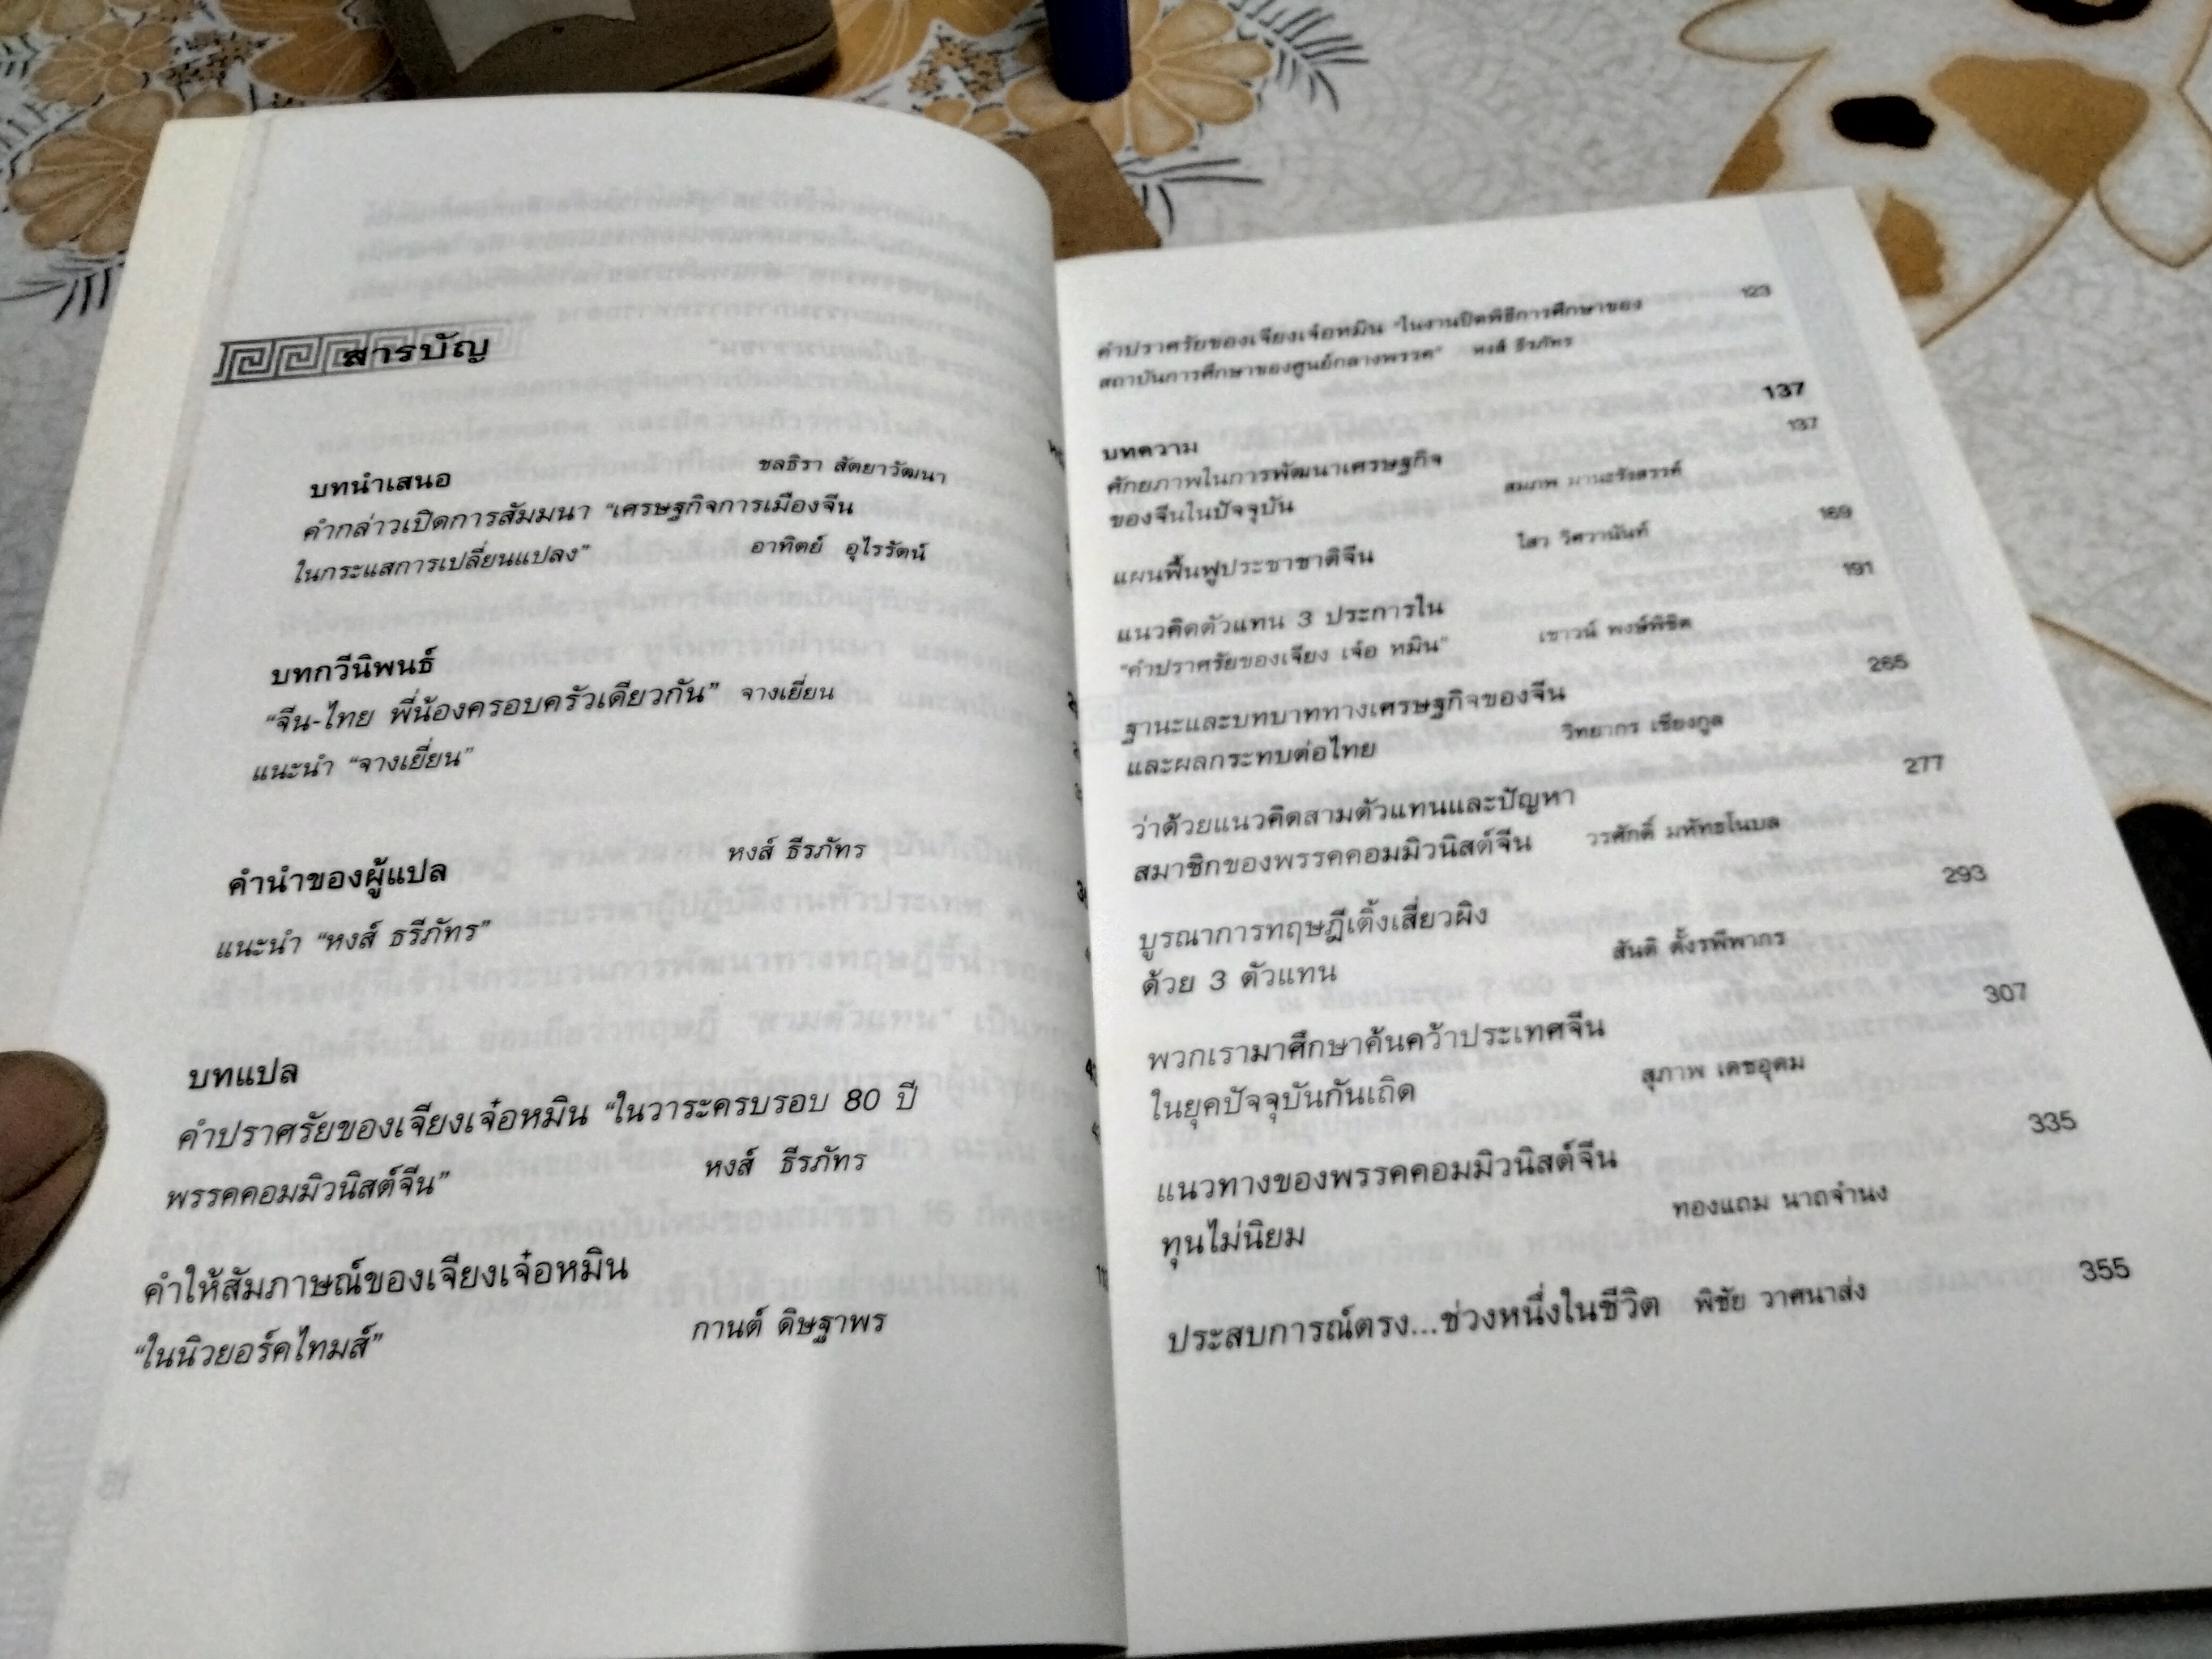 สารบัญ
บทนำเสนอ ชลธิรา สัตยาวัฒนา
คำกล่าวเปิดการสัมมนา “เศรษฐกิจการเมืองจีน
ในกระแสการเปลี่ยนแปลง” อาทิตย์ อุไรรัตน์
บทกวีนิพนธ์
“จีน-ไทย พี่น้องครอบครัวเดียวกัน” จางเยี่ยน
แนะนำ “จางเยี่ยน”
คำนำของผู้แปล หงส์ ธีรภัทร
แนะนำ “หงส์ ธรีภัทร”
บทแปล
คำปราศรัยของเจียงเจ๋อหมิน “ในวาระครบรอบ 80 ปี
พรรคคอมมิวนิสต์จีน” หงส์ ธีรภัทร
คำให้สัมภาษณ์ของเจียงเจ๋อหมิน
“ในนิวยอร์คไทมส์” กานต์ ดิษฐาพร
คำปราศรัยของเจียงเจ๋อหมิน “ในงานปิดพิธีการศึกษาของ 123
สถาบันการศึกษาของศูนย์กลางพรรค” หงส์ ธีรภัทร
บทความ 137
ศักยภาพในการพัฒนาเศรษฐกิจ 137
ของจีนในปัจจุบัน สมภพ มานะรังสรรค์
แผนฟื้นฟูประชาชาติจีน ไสว วิศวานันท์ 169
แนวคิดตัวแทน 3 ประการใน 191
“คำปราศรัยของเจียง เจ๋อ หมิน” เชาวน์ พงษ์พิชิต
ฐานะและบทบาททางเศรษฐกิจของจีน 265
และผลกระทบต่อไทย วิทยากร เชียงกูล
ว่าด้วยแนวคิดสามตัวแทนและปัญหา 277
สมาชิกของพรรคคอมมิวนิสต์จีน วรศักดิ์ มหัทธโนบล
บูรณาการทฤษฎีเติ้งเสี่ยวผิง 293
ด้วย 3 ตัวแทน สันติ ตั้งรพีพากร
พวกเรามาศึกษาค้นคว้าประเทศจีน 307
ในยุคปัจจุบันกันเถิด สุภาพ เดชอุดม
แนวทางของพรรคคอมมิวนิสต์จีน 335
ทุนไม่นิยม ทองแถม นาถจำนง
ประสบการณ์ตรง...ช่วงหนึ่งในชีวิต พิชัย วาศนาส่ง 355